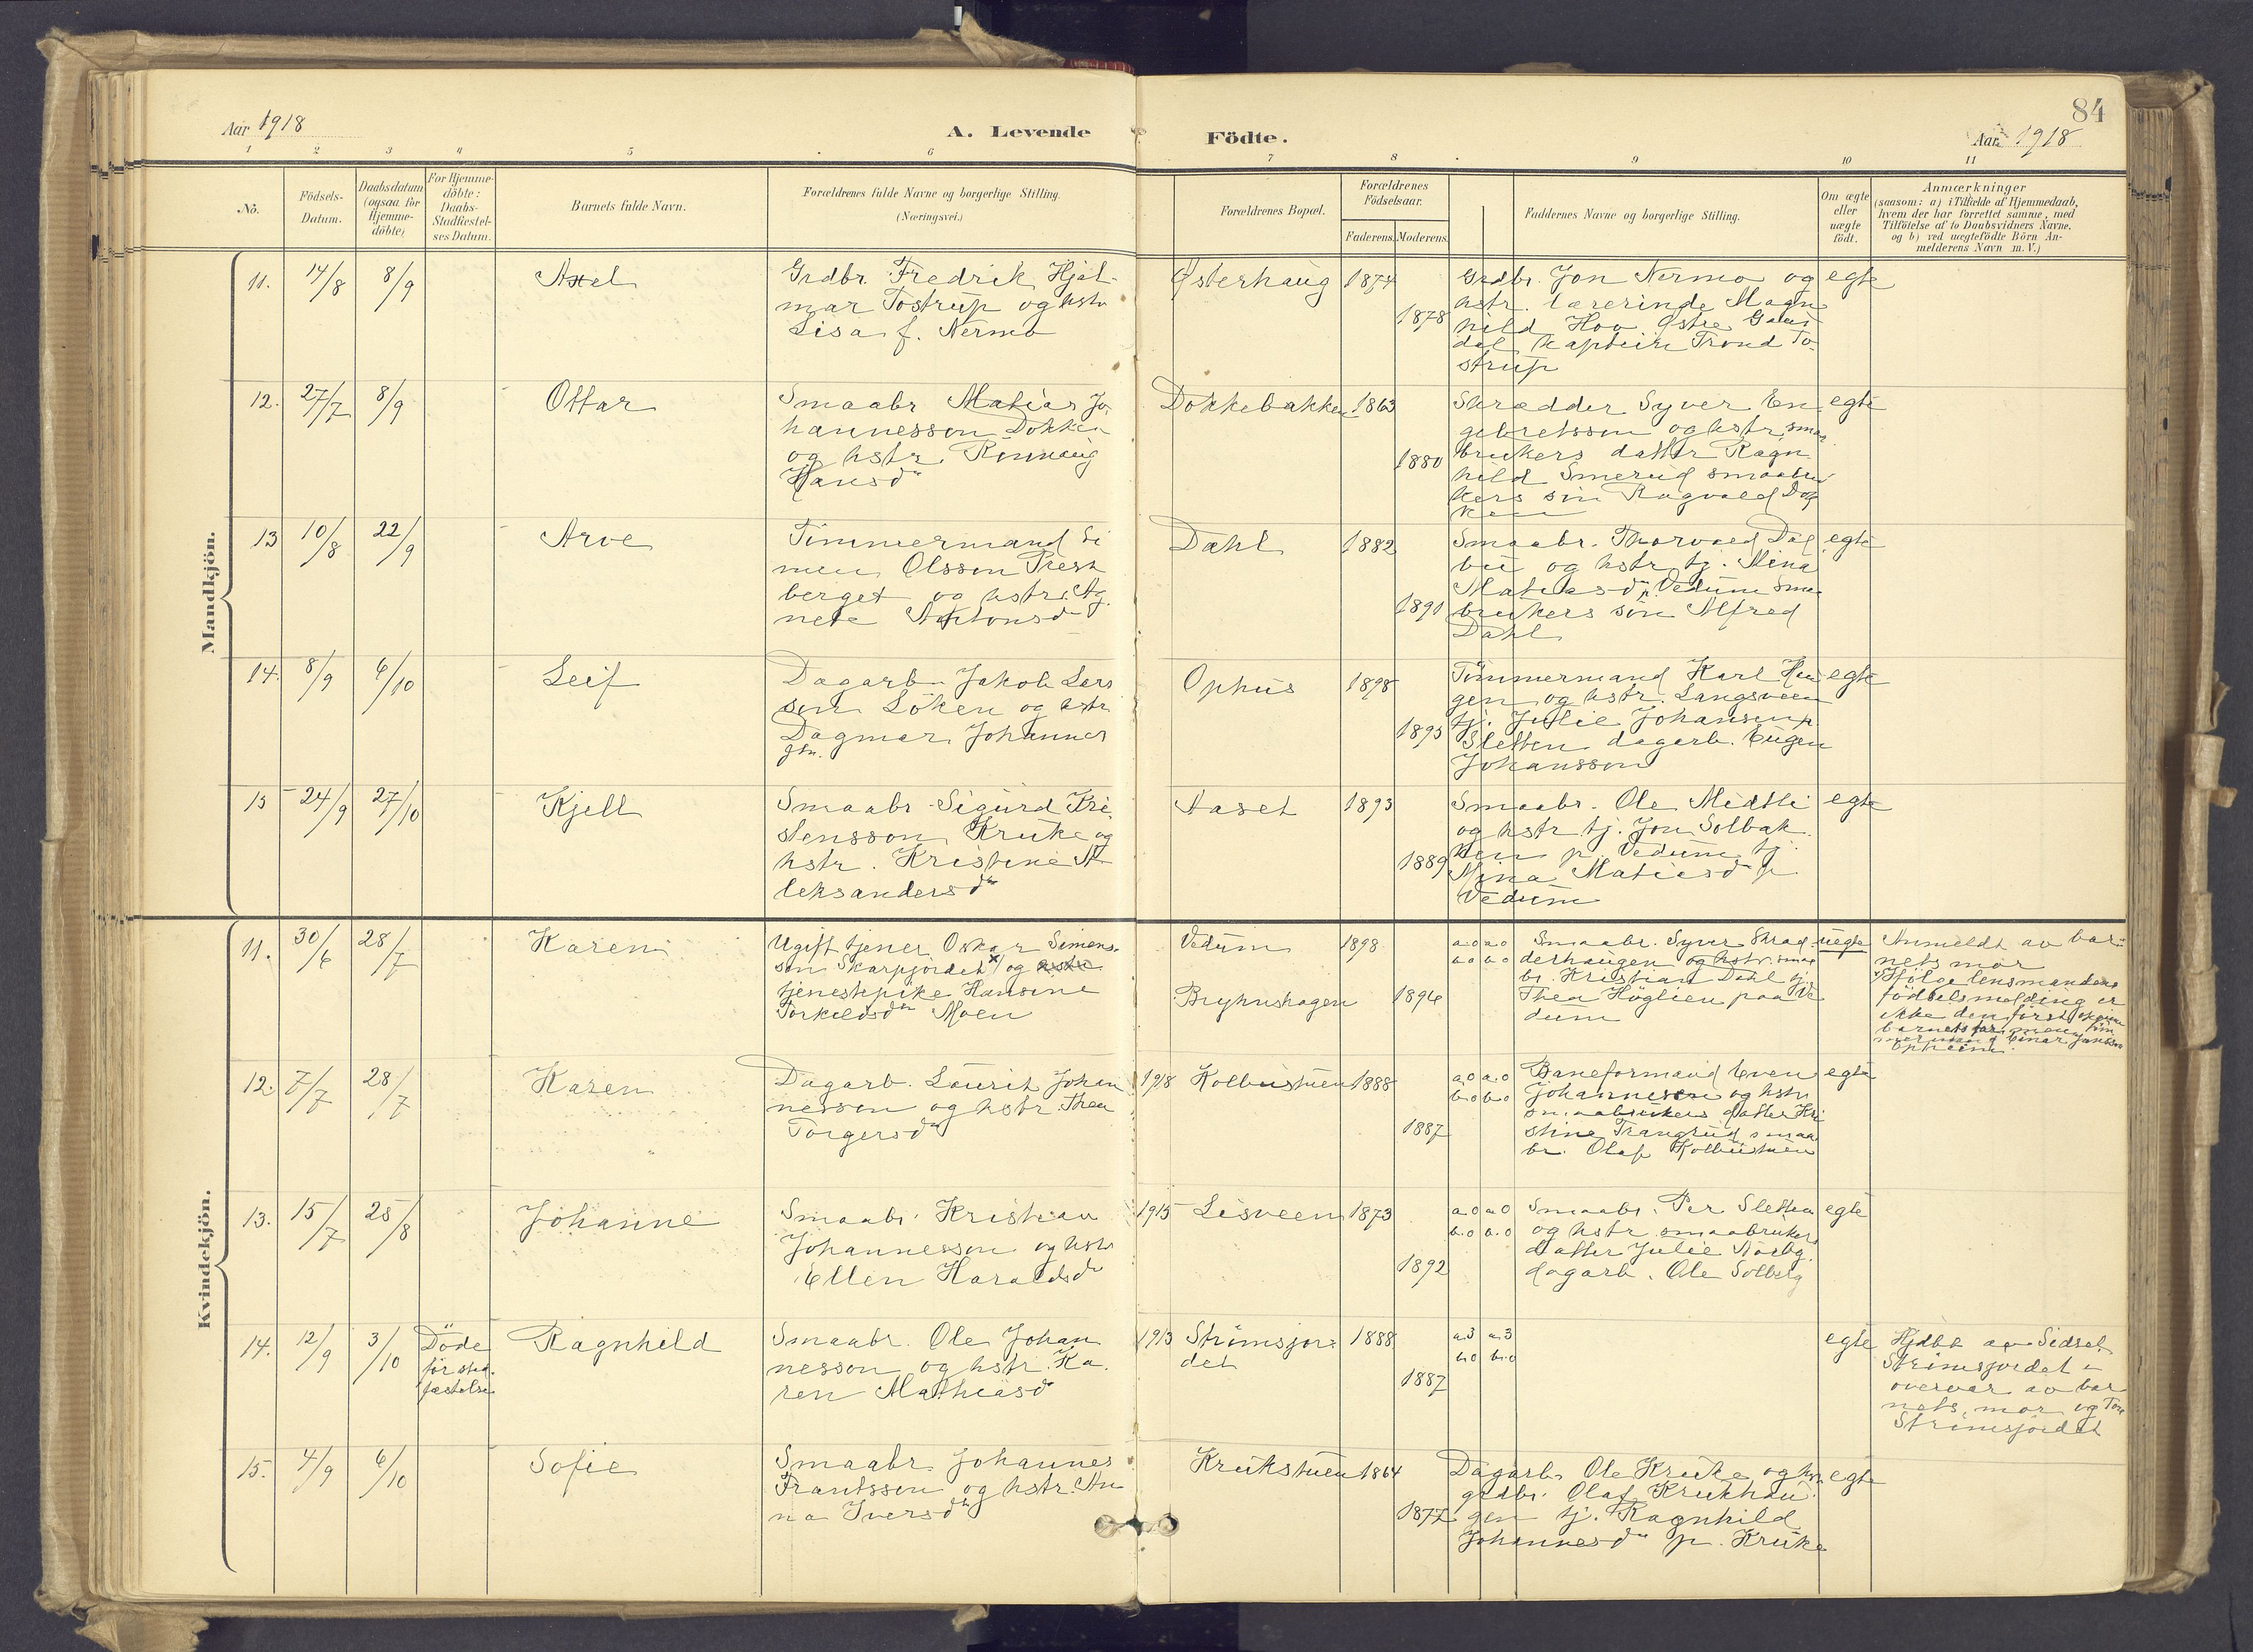 84
Aar 1918
A. Levende
Födte.
Aar 1918
1 2 3 4 5 6 7 8 9 10 11
No.
Födsels-
Datum.
Daabsdatum
(ogsaa for
Hjemme-
döbte)
For Hjemme-
döbte:
Daabs-
Stadfæstel-
ses Datum.
Barnets fulde Navn.
Forældrenes fulde Navne og borgerlige Stilling.
(Næringsvei.)
Forældrenes Bopæl.
Forældrenes
Födselsaar.
Faderens. Moderens.
Faddernes Navne og borgerlige Stilling.
Om ægte
eller
uægte
födt.
Anmærkninger
(saasom: a) i Tilfælde af Hjemmedaab,
hvem der har forrettet samme, med
Tilföielse af to Daabsvidners Navne,
og b) ved uægtefödte Börn An-
melderens Navn m. V.)
Mandkjön.
11. 14/8 8/9 Axel
Grdbr. Fredrik Hjal-
mar Tostrup og hstr
Lisa f. Nermo
Østerhaug 1874
1878
Grdbr. Jon Nermo og
hstr. lærerinde Magn
hild Hov Østre Gaus
dal kaptein Trond To-
strup
egte
12. 27/7 8/9 Ottar
Smaabr Matias Jo
hannesson Dokken
og hstr. Rönnaug
Hansdr
Dokkebakken 1863
1880
Skrædder Syver En
gebretsson og hstr. smaa
brukers datter Ragn
hild Smerud smaabru
kers sön Ragvald Dok
ken
egte
13 10/8 22/9 Arve
Timmermand Si
men Olsson Prest
berget og hstr. Ag
nete Antonsdr
Dahl 1882
1891
Smaabr. Thorvald Dal
bu og hstr. tj. Mina
Matiasdr p. Vedum sma
brukers sön Alfred
Dahl
egte
14. 8/9 6/10 Leif
Dagarb. Jakob Lars
son Löken og hstr
Dagmar Johannes
dtr.
Ophus 1898
1895
Tömmermand Karl Hau
gen og hstr. Langsveen
tj. Julie Johansen p.
Sletten dagarb. Eugen
Johansson
egte
15 24/9 27/10 Kjell
Smaabr. Sigurd Kri
stensson Kruke og
hstr. Kristine A
leksandersdr
Aaset 1893
1889
Smaabr. Ole Midtli
og hstr tj. Jon Solbak
ken p. Vedum tj.
Mina Matiasdr p
Vedum
egte
Kvindekjön.
11. 30/6 28/7 Karen
Ugift tjener Oskar Simens
son Skarpjordet x) og hstr.
tjenestepike Hansine
Torkildsdr Moen
Vedum 1898
Bryhnshagen 1896
a.o a.o
b.o b.o
Smaabr. Syver Skræd
derhaugen og hstr. smaa
br. Kristian Dahl tj.
Thea Höglien paa Ve
dum
uegte
Anmeldt av bar-
nets mor
x) Ifölge lensmandens
födselsmelding er
ikke den först opgivne
barnets far, men töm
mermand Einar Jansson
Opheim.
12. 7/7 28/7 Karen
Dagarb. Laurits Johan
nesson og hstr. Thea
Torgersdr
1918 Kolbustuen 1888
1887
a.o a.o
b.o b.o
Baneformand Even
Johannesen og hstr
smaabrukers datter Kri
stine Trangrud, smaa
br. Olaf Kolbustuen
egte
13. 15/7 25/8 Johanne
Smaabr. Kristian
Johannesson og hstr
Ellen Haraldsdr
1915 Lisveen 1873
1892
a.o a.o
b.o b.o
Smaabr. Per Sletten
og hstr smaabrukers
datter Julie
dagarb. Ole Solberg
egte
14. 12/9 3/10 Döde
för stad
fæstelse
Ragnhild
Smaabr. Ole Johan
nesson og hstr. Ka
ren Mathiasdr
1913 Strimsjor
det 1888
1887
a.3 a.3
b.o b.o
egte
Hjdbt av Sidsel
Strimsjordet i
overvær av bar
nets mor og Tore
Strimsjordet
15. 4/9 6/10 Sofie
Smaabr. Johannes
Frantsson og hstr. An
na Iversdr
Krukstuen 1864
1877
Dagarb. Ole Kruke og hstr.
grdbr. Olaf Krukhau
gen tj. Ragnhild
Johannesdr p. Kruke
egte